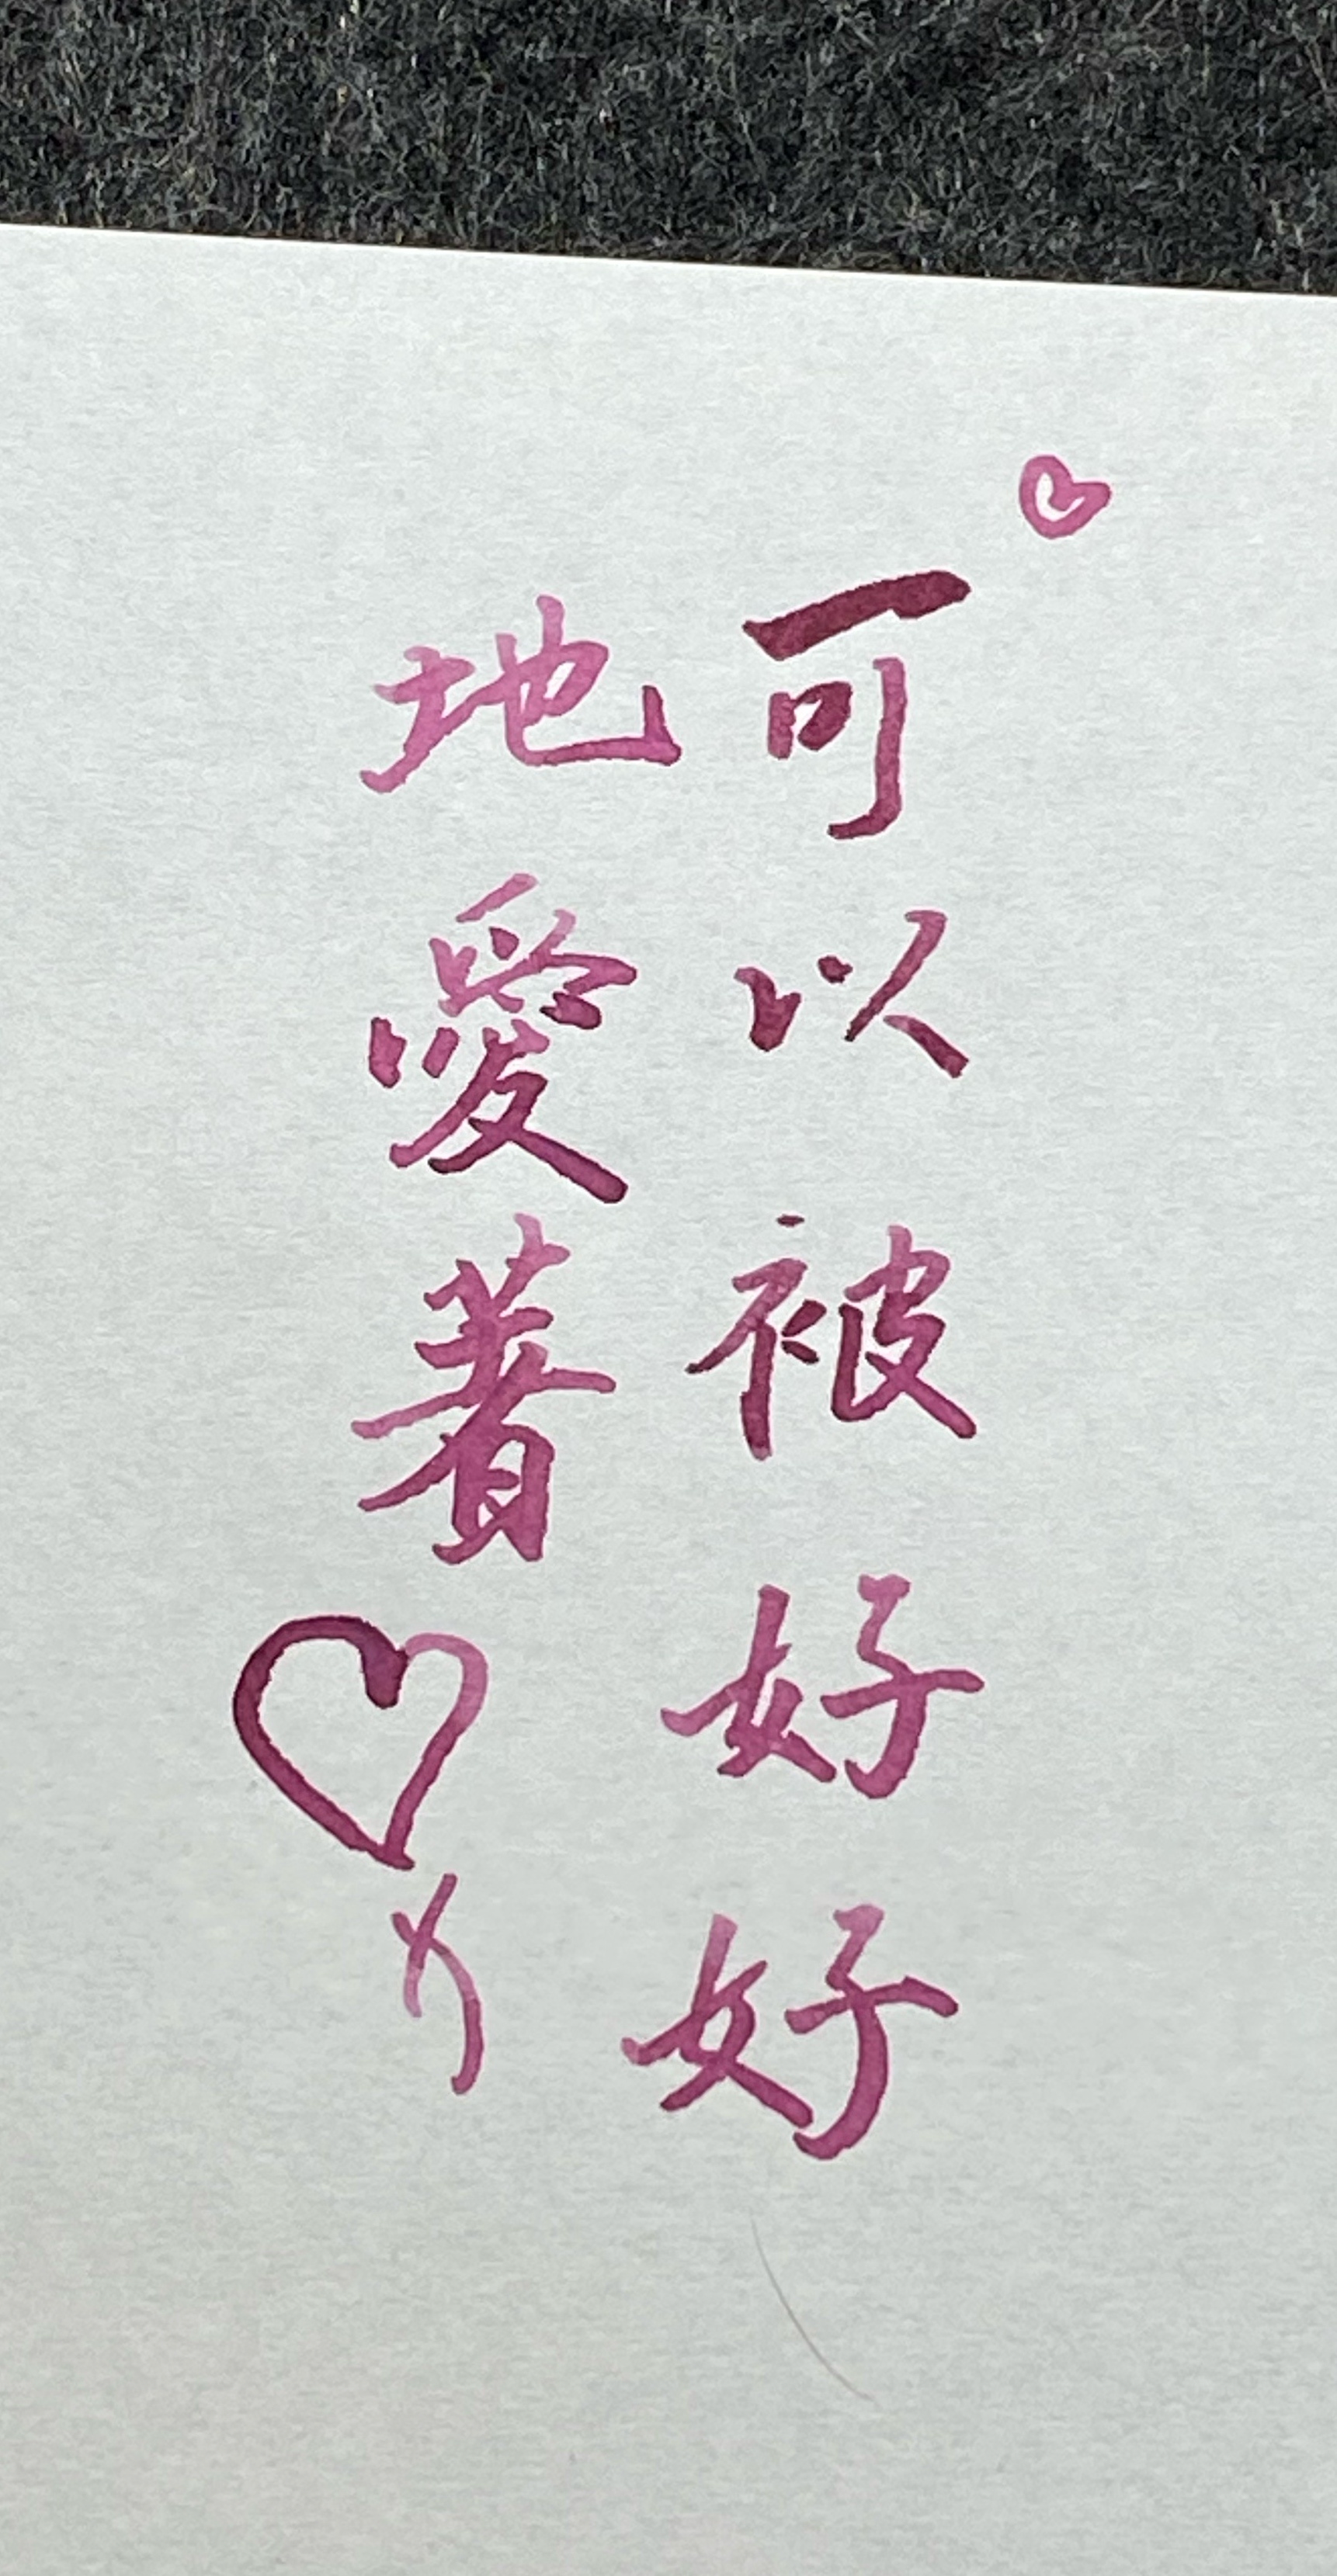 可以被好好
地愛著